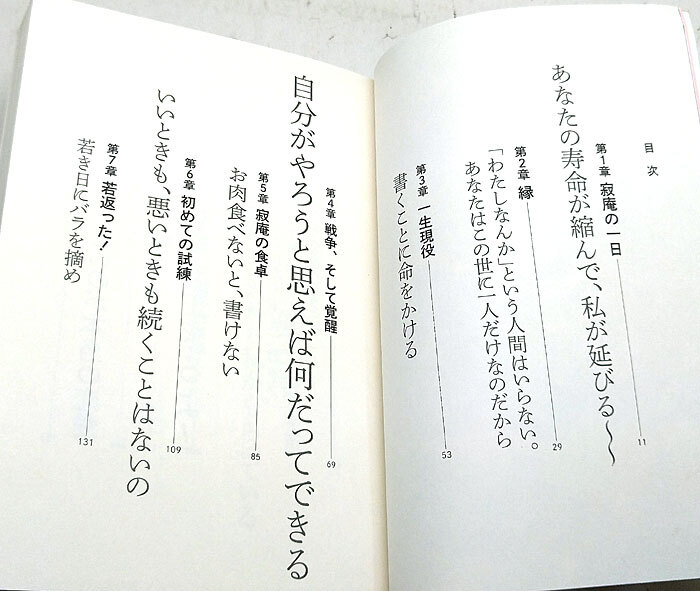 目次
第1章 寂庵の一日
11
あなたの寿命が縮んで、私が延びる〜〜
第2章 縁
29
「わたしなんか」という人間はいらない。
あなたはこの世に一人だけなのだから
第3章 一生現役
53
書くことに命をかける
第4章 戦争、そして覚醒
69
自分がやろうと思えば何だってできる
第5章 寂庵の食卓
85
お肉食べないと、書けない
第6章 初めての試練
109
いいときも、悪いときも続くことはないの
第7章 若返った！
131
若き日にバラを摘め